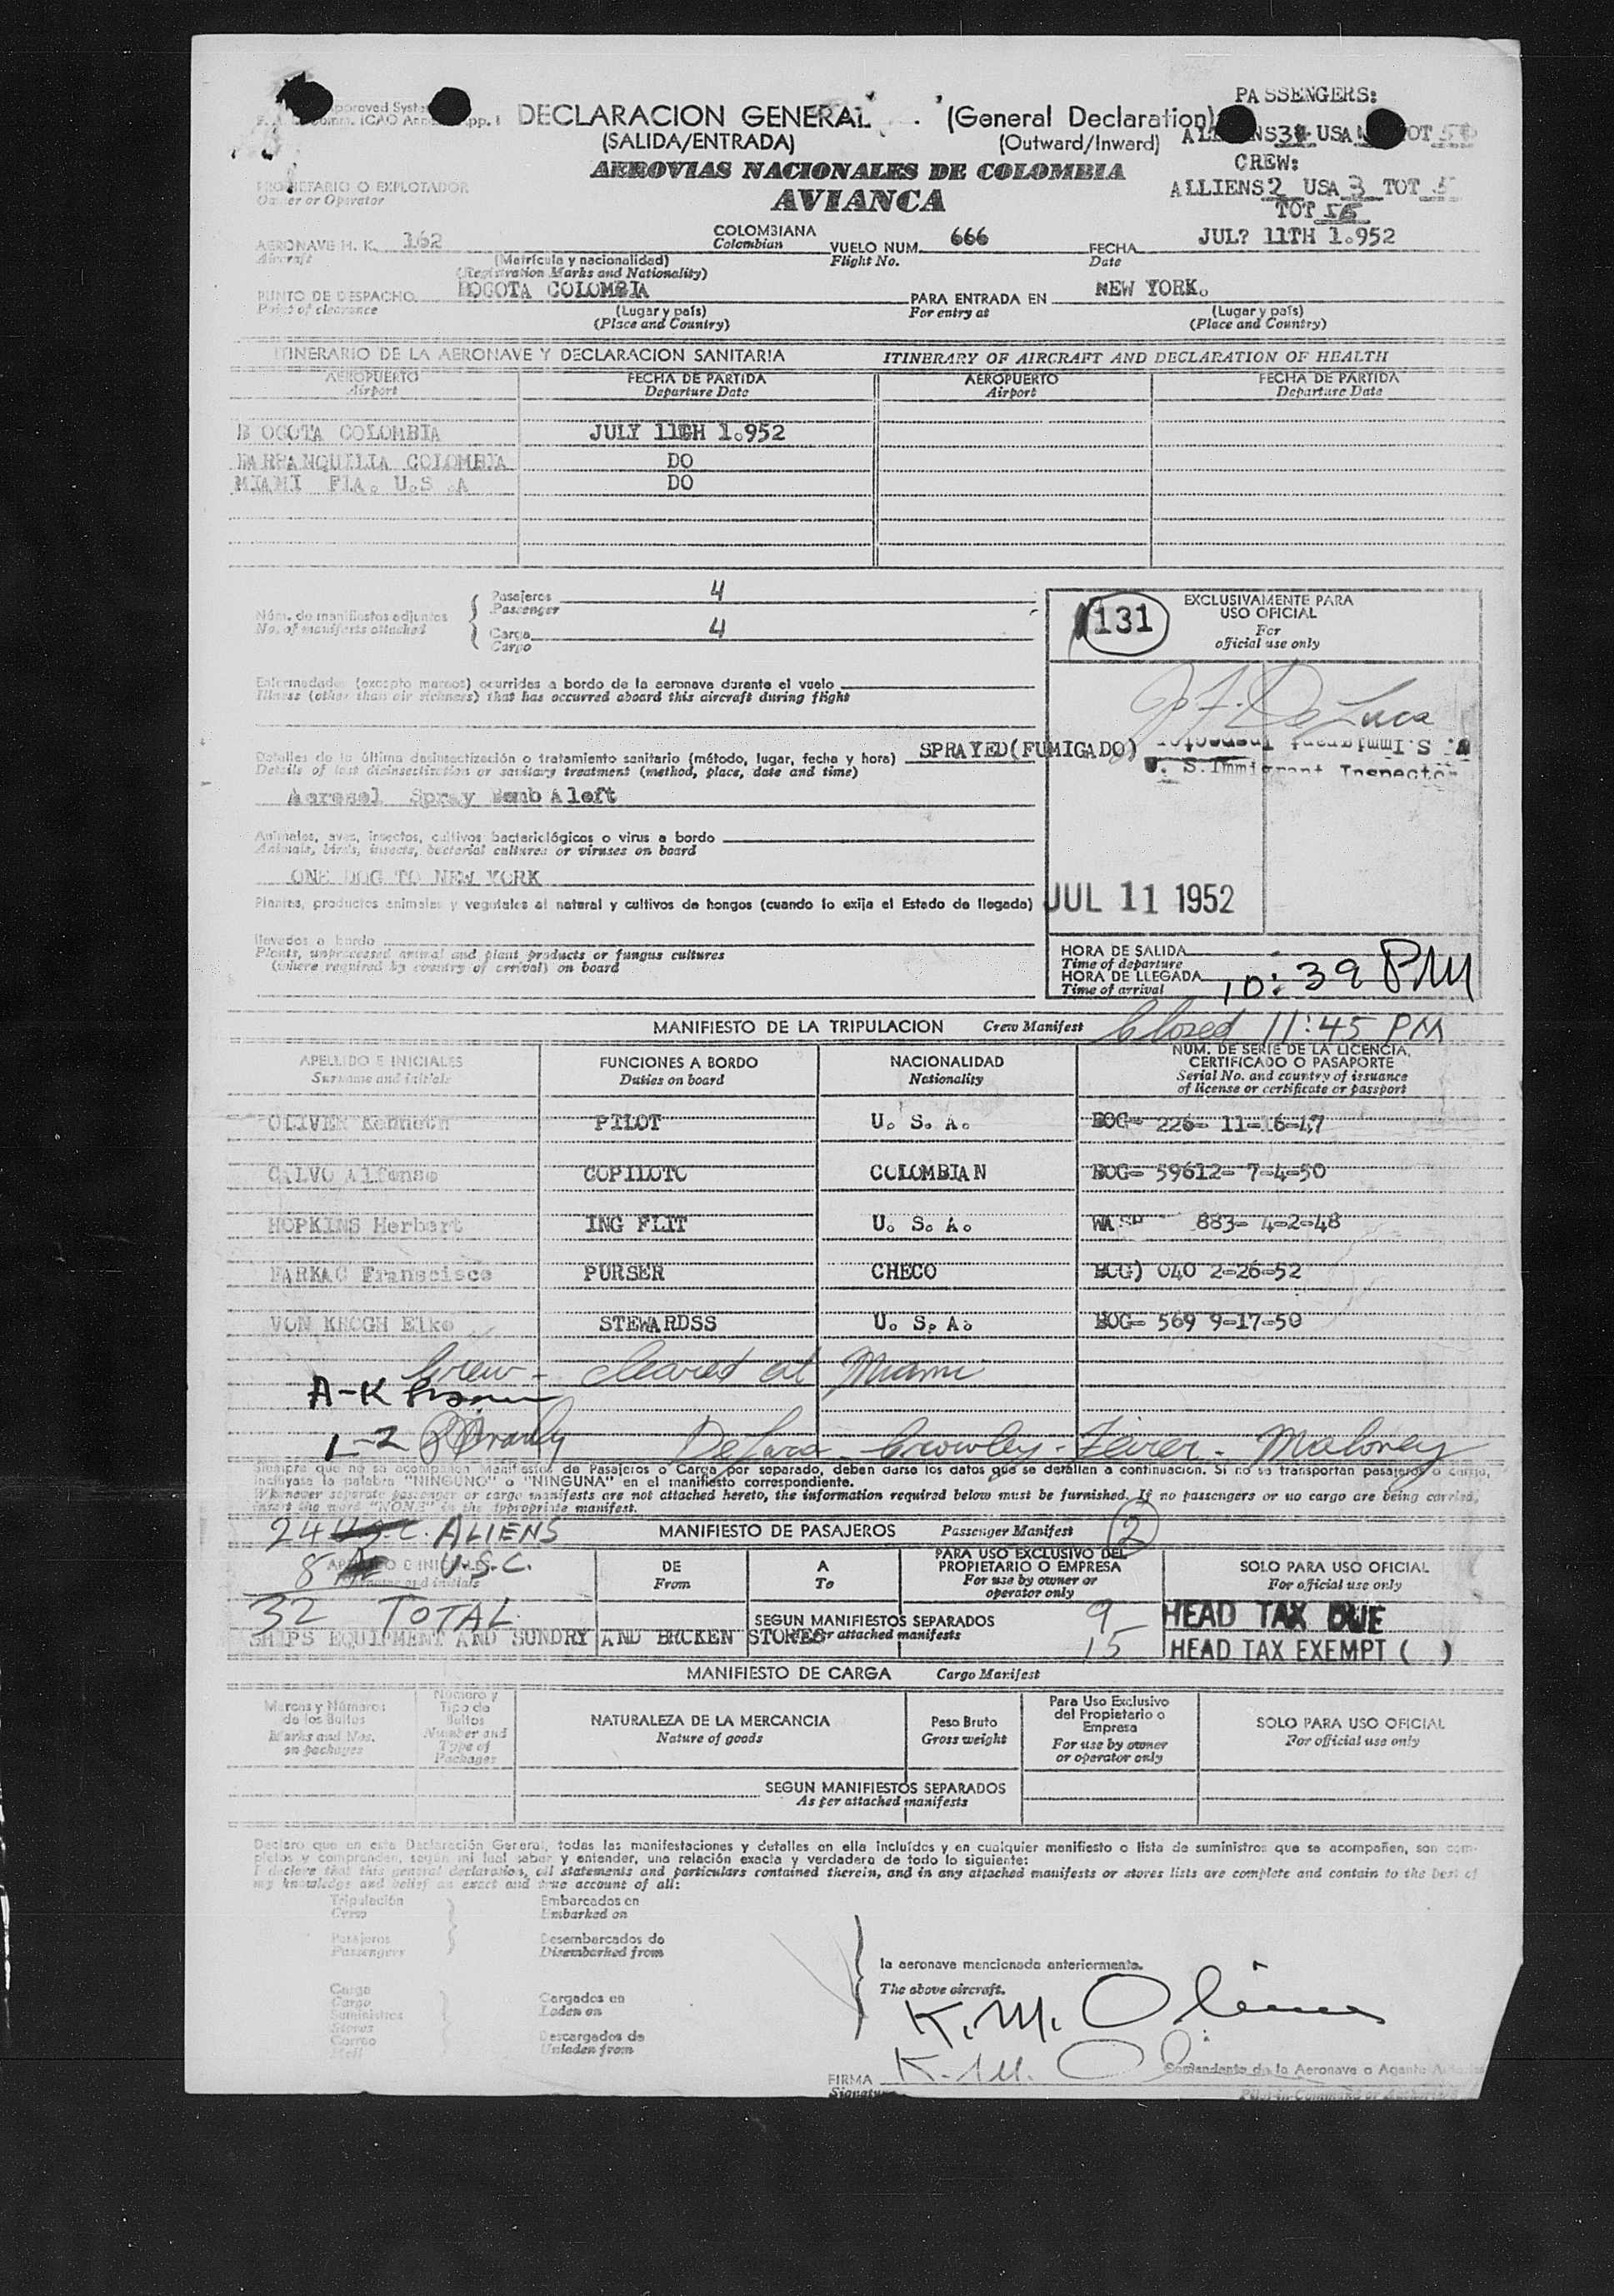 PASSENGERS:
DECLARACION GENERAL (General Declaration)
(SALIDA/ENTRADA) (Outward/Inward)
USA
CREW:
AEROVIAS NACIONALES DE COLOMBIA
AVIANCA
PROPIETARIO O EXPLOTADOR
Owner or Operator
ALLIENS 2 USA 3 TOT 5
TOT
AERONAVE H. K. 162 COLOMBIANA VUELO NUM. 666 FECHA JUL? 11TH 1.952
Aircraft Colombian Flight No. Date
(Matrícula y nacionalidad)
(Registration Marks and Nationality)
PUNTO DE DESPACHO BOGOTA COLOMBIA PARA ENTRADA EN NEW YORK.
Point of clearance (Lugar y país) For entry at (Lugar y país)
(Place and Country) (Place and Country)
ITINERARIO DE LA AERONAVE Y DECLARACION SANITARIA ITINERARY OF AIRCRAFT AND DECLARATION OF HEALTH
AEROPUERTO FECHA DE PARTIDA AEROPUERTO FECHA DE PARTIDA
Airport Departure Date Airport Departure Date
B OGOTA COLOMBIA JULY 11TH 1.952
BARRANQUILLA COLOMBIA DO
MIAMI FLA. U.S .A DO
Núm. de manifiestos adjuntos
No. of manifests attached
Pasajeros 4
Passenger
Carga 4
Cargo
131
EXCLUSIVAMENTE PARA
USO OFICIAL
For
official use only
Enfermedades (excepto mareos) ocurridas a bordo de la aeronave durante el vuelo
Illness (other than air sickness) that has occurred aboard this aircraft during flight
J. F. De Luca
U. S. Immigrant Inspector
U. S. Immigrant Inspector
Detalles de la última desinsectización o tratamiento sanitario (método, lugar, fecha y hora) SPRAYED(FUMIGADO)
Details of last disinsectization or sanitary treatment (method, place, date and time)
Aerosol Spray Bomb Aloft
Animales, aves, insectos, cultivos bacteriológicos o virus a bordo
Animals, birds, insects, bacterial cultures or viruses on board
ONE DOG TO NEW YORK
JUL 11 1952
Plantas, productos animales y vegetales al natural y cultivos de hongos (cuando lo exija el Estado de llegada)
llevados a bordo
Plants, unprocessed animal and plant products or fungus cultures
(where required by country of arrival) on board
HORA DE SALIDA
Time of departure
HORA DE LLEGADA 10:39 PM
Time of arrival
MANIFIESTO DE LA TRIPULACION Crew Manifest Closed 11:45 PM
APELLIDO E INICIALES FUNCIONES A BORDO NACIONALIDAD NUM. DE SERIE DE LA LICENCIA, CERTIFICADO O PASAPORTE
Surname and initials Duties on board Nationality Serial No. and country of issuance of license or certificate or passport
OLIVER Kenneth PILOT U. S. A. BOG- 226- 11-16-47
CALVO Alfonso COPILOTO COLOMBIAN BOG- 59612- 7-4-50
HOPKINS Herbert ING FLIT U. S. A. WASH 883- 4-2-48
FARKAC Franscisco PURSER CHECO BOG) 040 2-26-52
VON KROGH Elke STEWARDSS U. S. A. BOG- 569 9-17-50
Crew - cleared at Miami
A-K
L-Z
Crowley - Maloney
Siempre que no se acompañen Manifiestos de Pasajeros o Carga por separado, deben darse los datos que se detallan a continuación. Si no se transportan pasajeros o carga,
inclúyase la palabra "NINGUNO" o "NINGUNA" en el manifiesto correspondiente.
Whenever separate passenger or cargo manifests are not attached hereto, the information required below must be furnished. If no passengers or no cargo are being carried,
insert the word "NONE" in the appropriate manifest.
24 U.S.C. ALIENS MANIFIESTO DE PASAJEROS Passenger Manifest 2
8 U.S.C.
32 TOTAL
APELLIDO E INICIALES DE A PARA USO EXCLUSIVO DEL PROPIETARIO O EMPRESA SOLO PARA USO OFICIAL
Surname and initials From To For use by owner or operator only For official use only
SEGUN MANIFIESTOS SEPARADOS 9 HEAD TAX DUE
SHIPS EQUIPMENT AND SUNDRY AND BROKEN STORES As per attached manifests 15 HEAD TAX EXEMPT ( )
MANIFIESTO DE CARGA Cargo Manifest
Marcas y Números de los Bultos
Marks and Nos. on packages
Número y Tipo de Bultos
Number and Type of Packages
NATURALEZA DE LA MERCANCIA
Nature of goods
Peso Bruto
Gross weight
Para Uso Exclusivo del Propietario o Empresa
For use by owner or operator only
SOLO PARA USO OFICIAL
For official use only
SEGUN MANIFIESTOS SEPARADOS
As per attached manifests
Declaro que en esta Declaración General, todas las manifestaciones y detalles en ella incluídos y en cualquier manifiesto o lista de suministros que se acompañen, son com-
pletos y comprenden, según mi leal saber y entender, una relación exacta y verdadera de todo lo siguiente:
I declare that this general declaration, all statements and particulars contained therein, and in any attached manifests or stores lists are complete and contain to the best of
my knowledge and belief an exact and true account of all:
Tripulación
Crew
Pasajeros
Passengers
Embarcados en
Embarked on
Desembarcados de
Disembarked from
Carga
Cargo
Suministros
Stores
Correo
Mail
Cargados en
Laden on
Descargados de
Unladen from
la aeronave mencionada anteriormente.
The above aircraft.
K. M. Oliver
K. M. Oliver
FIRMA
Signature
Comandante de la Aeronave o Agente